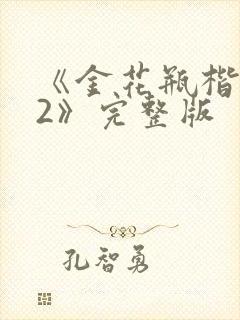 《金花瓶楷
2》完整版
孔智勇